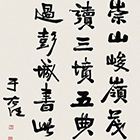 崇山峻嶺茂
讀三墳五典
過彭城書此
于右任